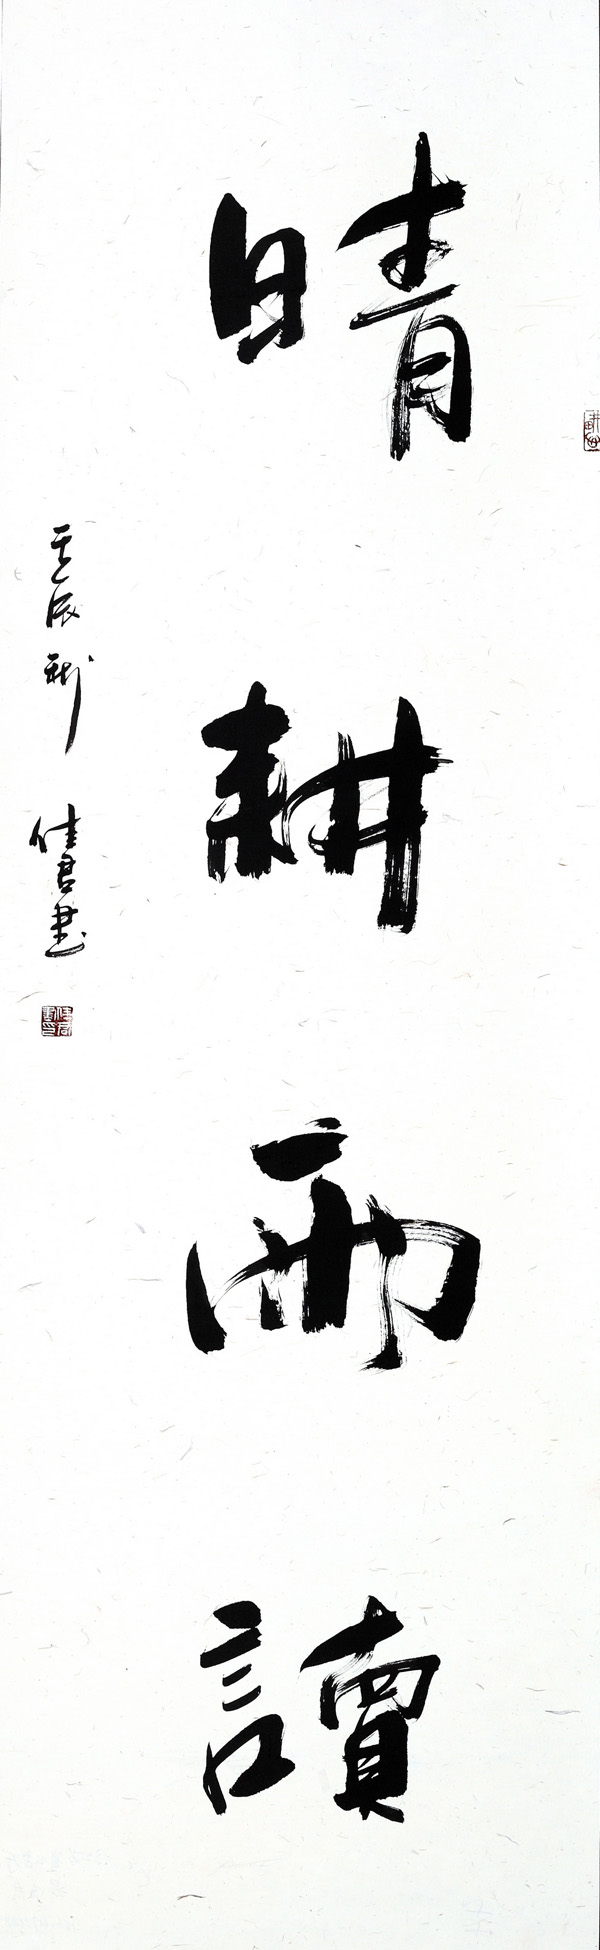 晴耕雨讀
壬辰新
佳君書